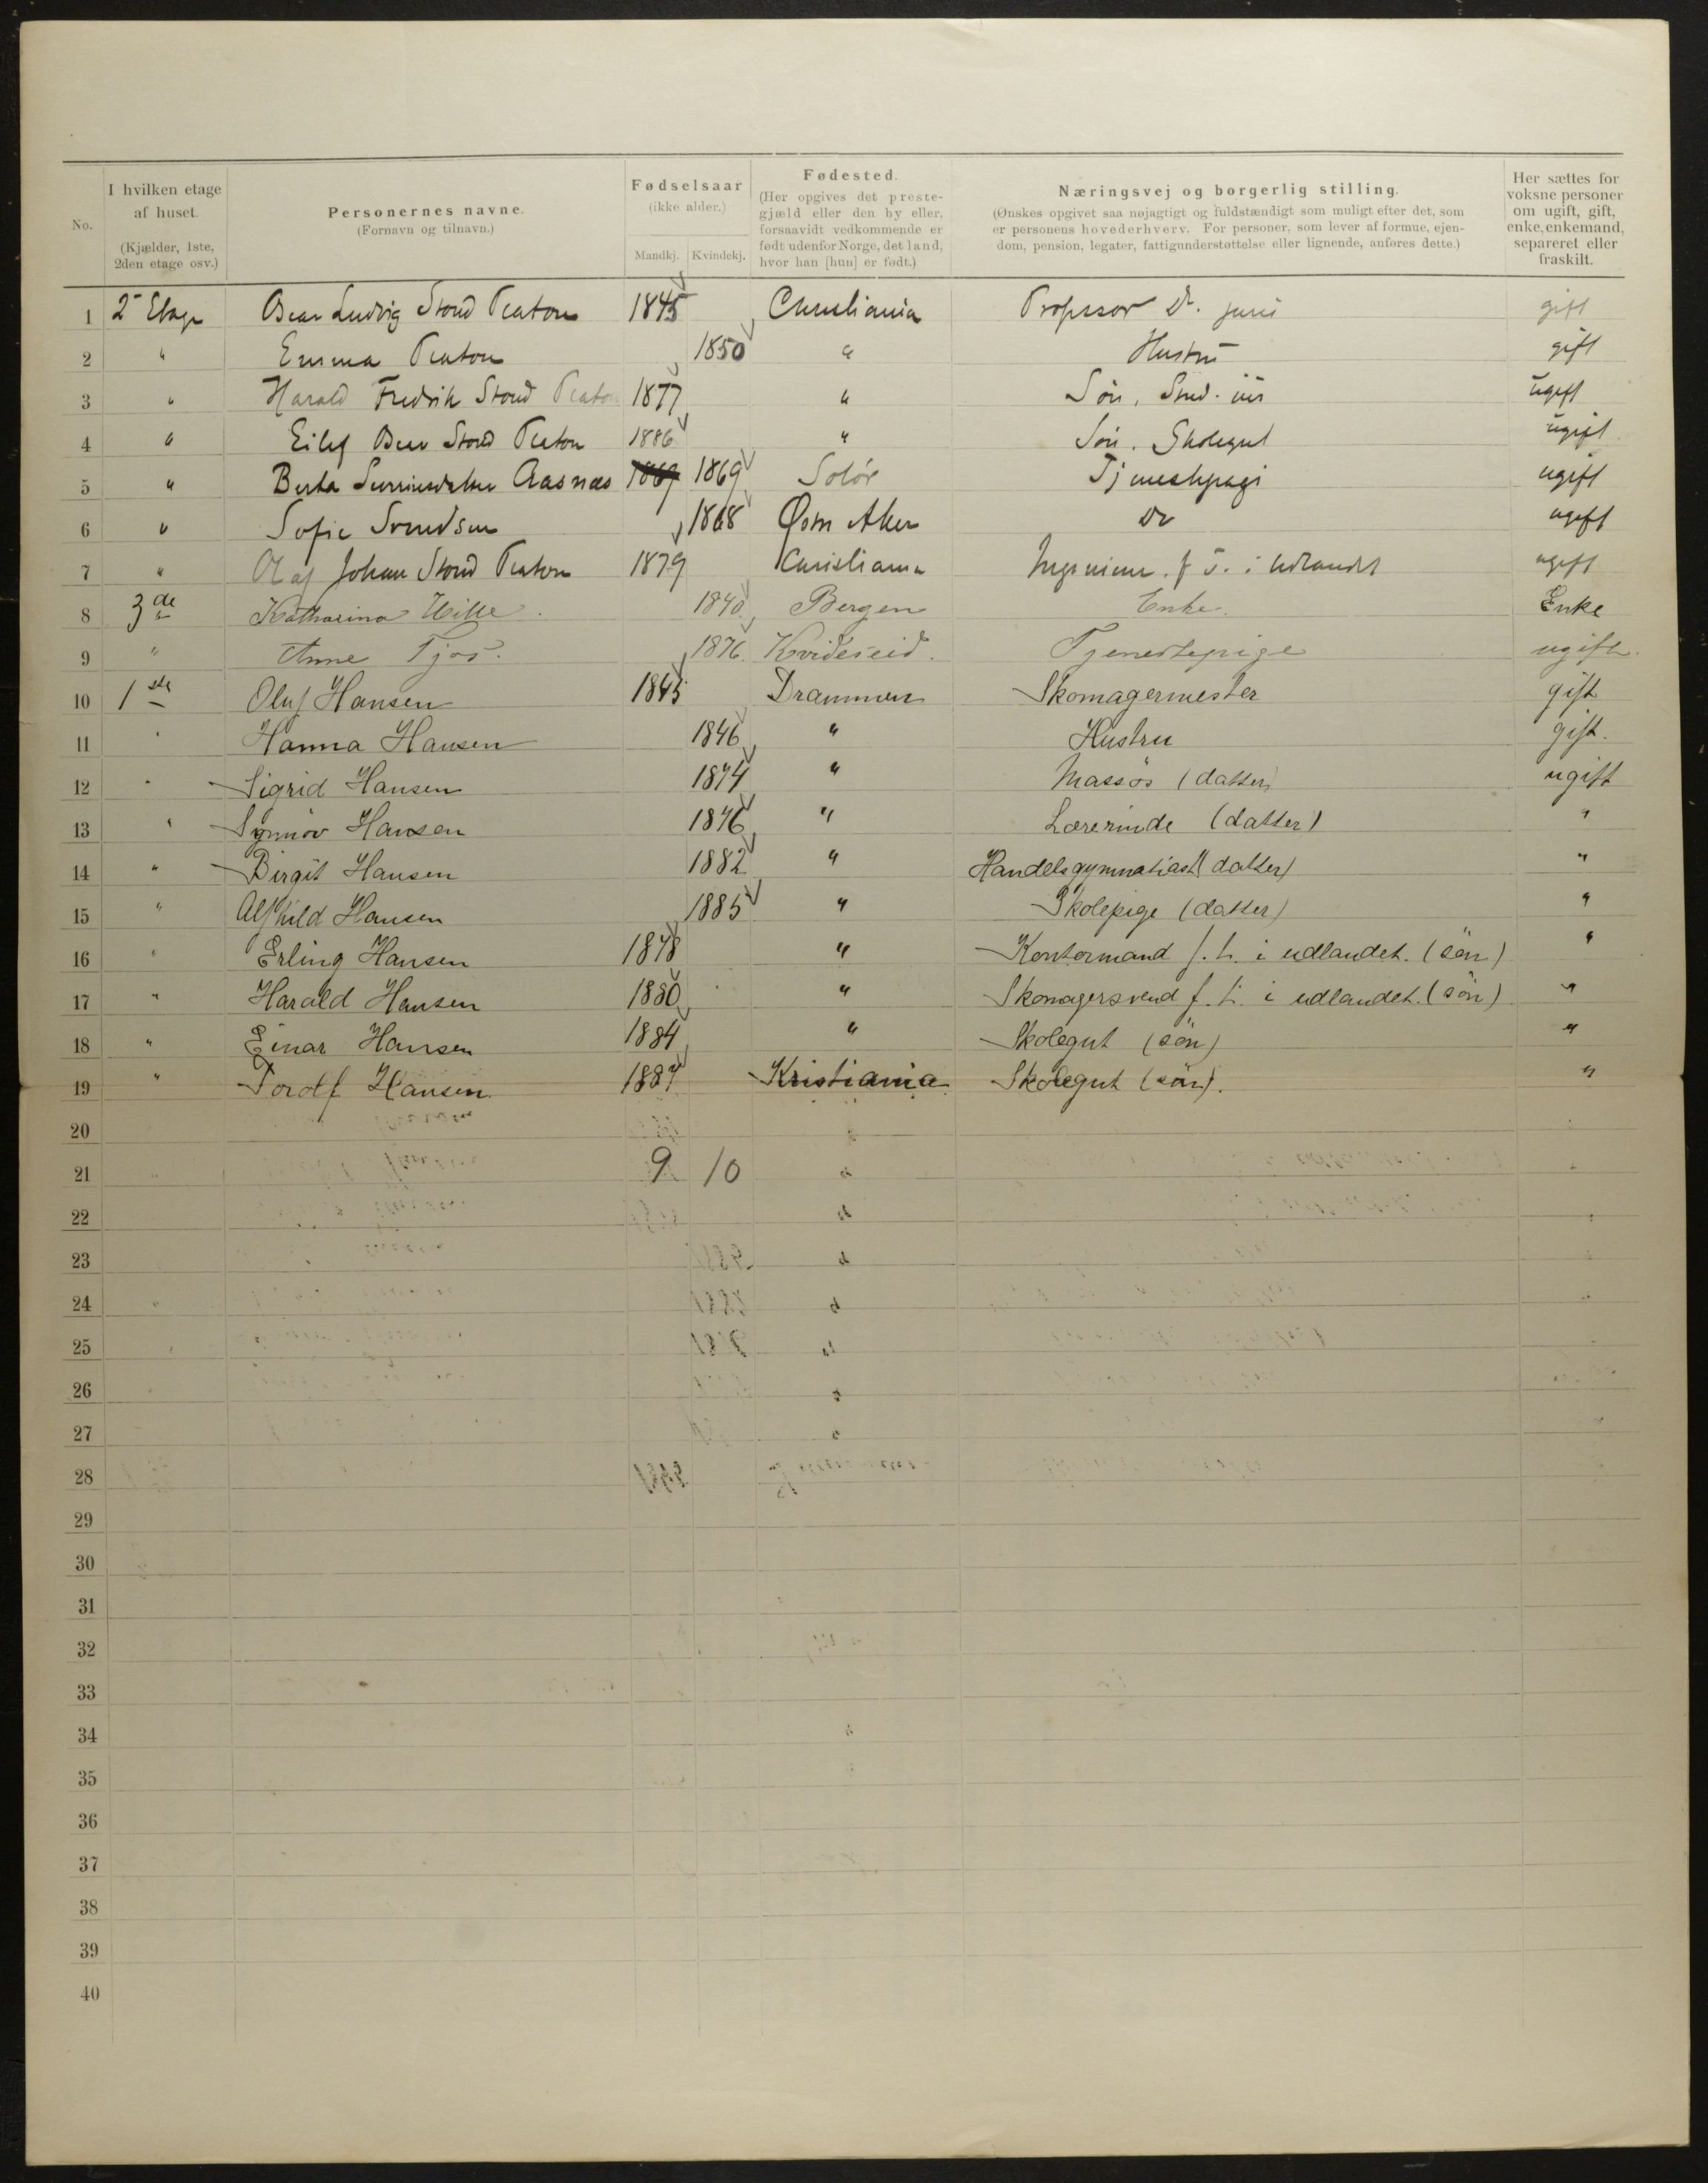 No. | I hvilken etage af huset. (Kjælder, 1ste, 2den etage osv.) | Personernes navne. (Fornavn og tilnavn.) | Fødselsaar (ikke alder.) Mandkj. Kvindekj. | Fødested. (Her opgives det prestegjæld eller den by eller, forsaavidt vedkommende er født udenfor Norge, det land, hvor han [hun] er født.) | Næringsvej og borgerlig stilling. (Ønskes opgivet saa nøjagtigt og fuldstændigt som muligt efter det, som er personens hovederhverv. For personer, som lever af formue, ejendom, pension, legater, fattigunderstøttelse eller lignende, anføres dette.) | Her sættes for voksne personer om ugift, gift, enke, enkemand, separeret eller fraskilt.
1 2 Etage Oscar Ludvig Stoud Platou 1845 Christiania Professor Dr. juris gift
2 " Emma Platou 1850 " Hustru gift
3 " Harald Fredrik Stoud Platou 1877 " Søn, Stud. jur ugift
4 " Eilif Oscar Stoud Platou 1886 " Søn. Skolegut ugift
5 " Berta Aasnæs 1869 1869 Solør Tjenestepige ugift
6 " Sofie Svendsen 1868 Østre Aker Do ugift
7 " Olaf Johan Stoud Platou 1879 Christiania Ingeniør. f. t. i Udlandet ugift
8 3de Katharina Hille. 1840 Bergen Enke. Enke
9 " Anne Tjos. 1876 Kvideseid. Tjenestepige ugift.
10 1ste Oluf Hansen 1845 Drammen Skomagermester gift
11 " Hanna Hansen 1846 " Hustru gift.
12 " Sigrid Hansen 1874 " Massøs (datter) ugift
13 " Synnöv Hansen 1876 " Lærerinde (datter) "
14 " Birgit Hansen 1882 " Handelsgymnatiast (datter) "
15 " Alfhild Hansen 1885 " Skolepige (datter) "
16 " Erling Hansen 1878 " Kontormand f. t. i udlandet. (sön) "
17 " Harald Hansen 1880 " Skomagersvend f. t. i udlandet. (sön) "
18 " Einar Hansen 1884 " Skolegut (sön) "
19 " Torolf Hansen 1887 Kristiania Skolegut (sön). "
20
21 9 10
22
23
24
25
26
27
28
29
30
31
32
33
34
35
36
37
38
39
40